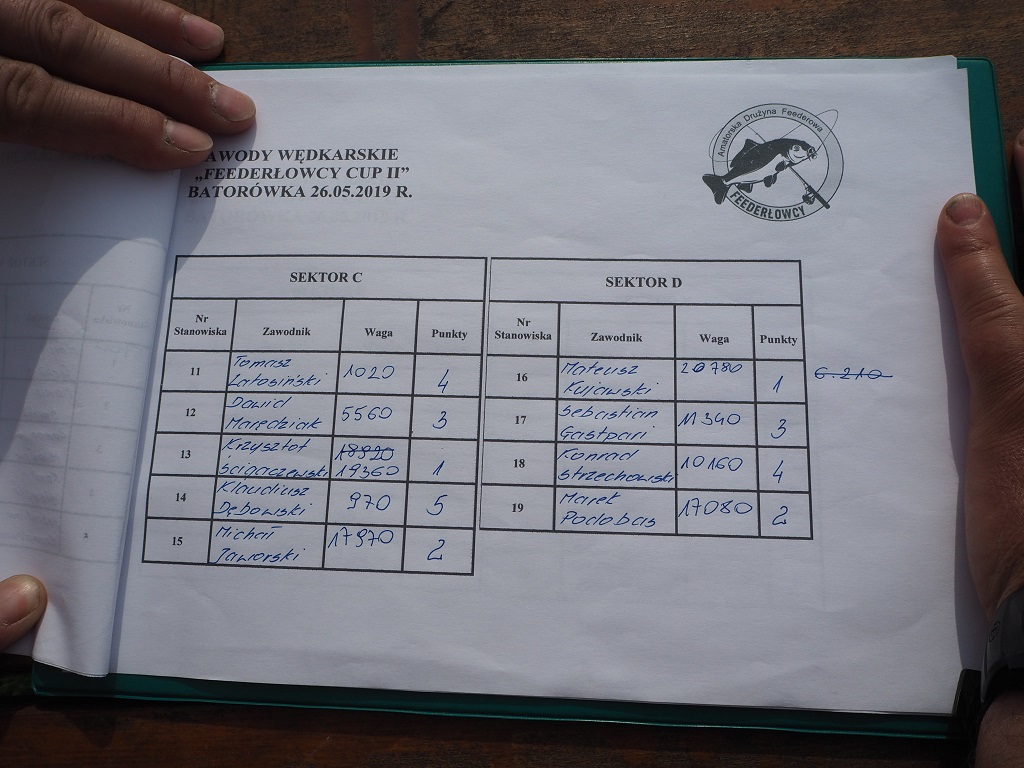 AWODY WĘDKARSKIE
„FEEDERŁOWCY CUP II”
BATORÓWKA 26.05.2019 R.
Amatorska Drużyna Feederowa
FEEDERŁOWCY
SEKTOR C
Nr Stanowiska Zawodnik Waga Punkty
11 Tomasz Latosiński 1020 4
12 Dawid Maredziak 5560 3
13 Krzysztof Ścigaczewski 18920 19360 1
14 Klaudiusz Dębowski 970 5
15 Michał Jaworski 17970 2
SEKTOR D
Nr Stanowiska Zawodnik Waga Punkty
16 Mateusz Kujawski 20780 1 6.210
17 Sebastian Gastpari 11340 3
18 Konrad Strzechowski 10160 4
19 Marek Podobas 17080 2